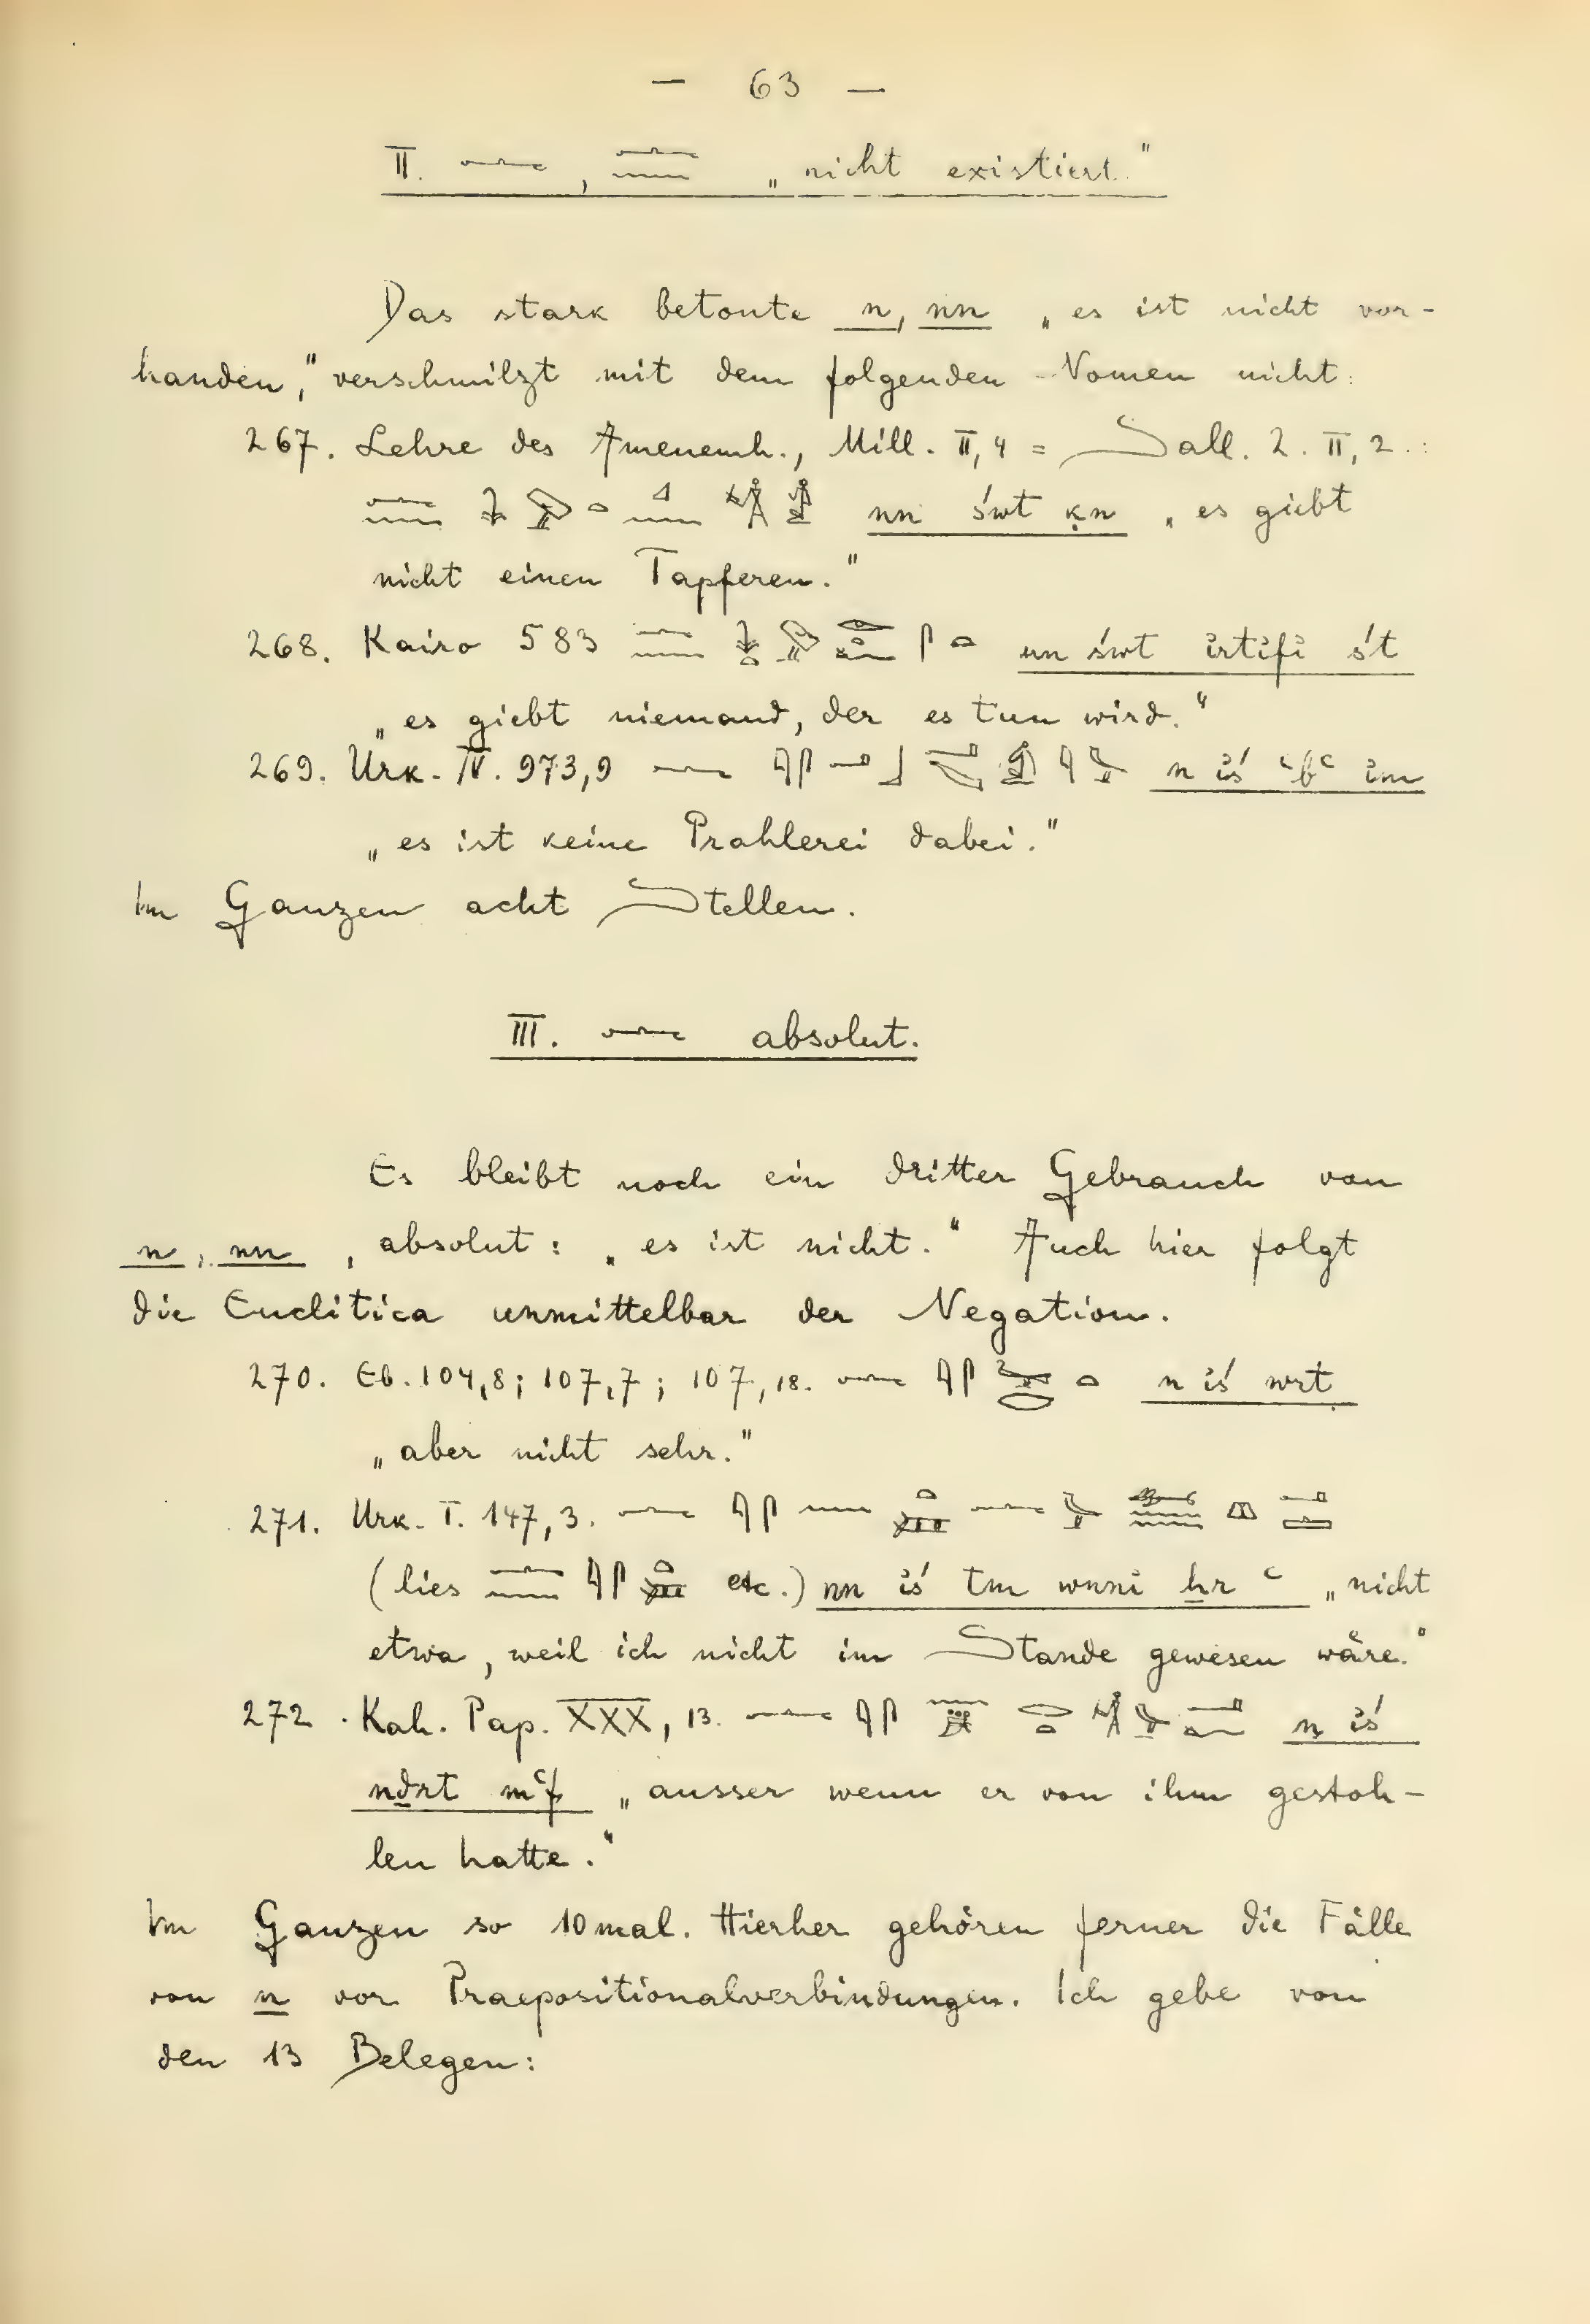 — 63 —
II. 𓂜, 𓂜𓈖 „nicht existiert."
Das stark betonte n, nn „es ist nicht vor-
handen," verschmilzt mit dem folgenden Nomen nicht:
267. Lehre des Amenemh., Mill. II, 4 = Sall. 2. II, 2:
nn św̓t ḳn „es giebt
nicht einen Tapferen."
268. Kairo 583 nn św̓t irtifi śt
„es giebt niemand, der es tun wird."
269. Urk. IV. 973,9 n iś ʿbʿ im
„es ist keine Prahlerei dabei."
Im Ganzen acht Stellen.
III. 𓂜 absolut.
Es bleibt noch ein dritter Gebrauch von
n, nn, absolut: „es ist nicht." Auch hier folgt
die Enclitica unmittelbar der Negation.
270. Eb. 104,8; 107,7; 107,18. 𓂜 𓇋𓋴 𓅨𓂋 𓏏 n iś wrt
„aber nicht sehr."
271. Urk. I. 147, 3.
(lies etc.) nn iś tm wnni ẖr ʿ „nicht
etwa, weil ich nicht im Stande gewesen wäre."
272. Kah. Pap. XXX, 13. n iś
nḏrt mʿf „ausser wenn er von ihm gestoh-
len hatte."
Im Ganzen so 10 mal. Hierher gehören ferner die Fälle
von n vor Praepositionalverbindungen. Ich gebe von
den 13 Belegen: